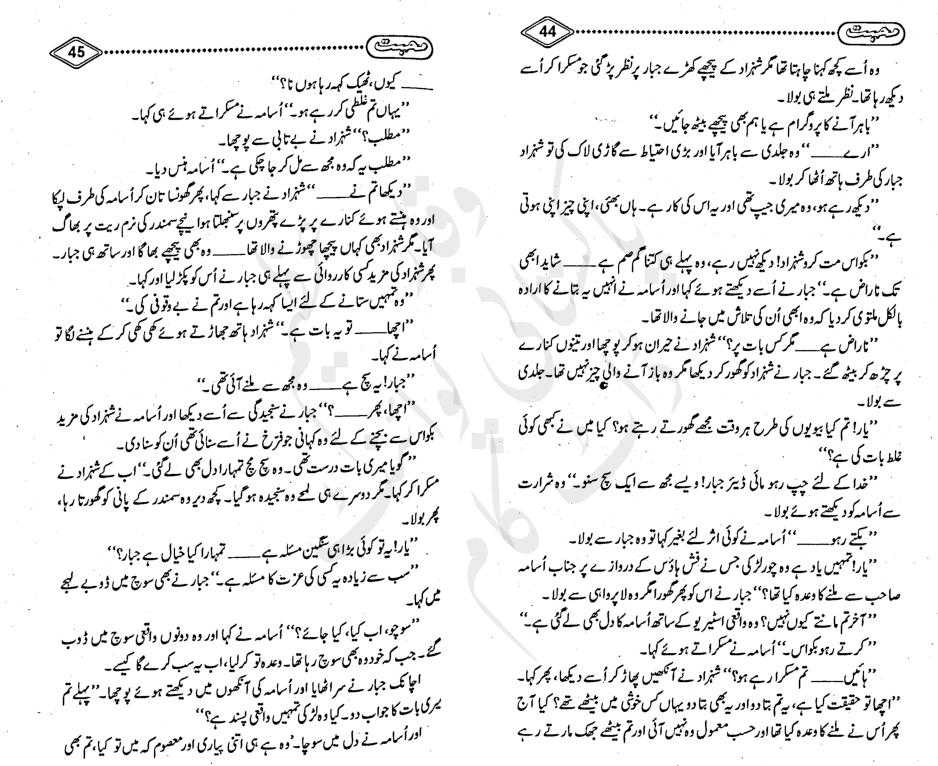 محبت 44
وہ اُسے کچھ کہنا چاہتا تھا مگر شہزاد کے پیچھے کھڑے جبار پر نظر پڑ گئی جو مسکرا کر اُسے
دیکھ رہا تھا۔ نظر ملتے ہی بولا۔
”باہر آنے کا پروگرام ہے یا ہم بھی پیچھے بیٹھ جائیں۔“
”ارے____“ وہ جلدی سے باہر آیا اور بڑی احتیاط سے گاڑی لاک کی تو شہزاد
جبار کی طرف ہاتھ اُٹھا کر بولا۔
”دیکھ رہے ہو، وہ میری جیپ تھی اور یہ اس کی کار ہے۔ ہاں بھئی، اپنی چیز اپنی ہوتی
ہے۔“
”بکواس مت کرو شہزاد! دیکھ نہیں رہے، وہ پہلے ہی کتنا گم صم ہے____ شاید ابھی
تک ناراض ہے۔“ جبار نے اُسے دیکھتے ہوئے کہا اور اُسامہ نے انہیں یہ بتانے کا ارادہ
بالکل ملتوی کر دیا کہ وہ ابھی اُن کی تلاش میں جانے والا تھا۔
”ناراض ہے____ مگر کس بات پر؟“ شہزاد نے حیران ہو کر پوچھا اور تینوں کنارے
پر چڑھ کر بیٹھ گئے۔ جبار نے شہزاد کو گھور کر دیکھا مگر وہ باز آنے والی چیز نہیں تھا۔ جلدی
سے بولا۔
”یار! تم کیا بیویوں کی طرح ہر وقت مجھے گھورتے رہتے ہو؟ کیا میں نے کبھی کوئی
غلط بات کی ہے؟“
”خدا کے لئے چپ رہو مائی ڈیئر جبار! ویسے مجھ سے ایک سچ سنو۔“ وہ شرارت
سے اُسامہ کو دیکھتے ہوئے بولا۔
”بکتے رہو____“ اُسامہ نے کوئی اثر لئے بغیر کہا تو وہ جبار سے بولا۔
”یار! تمہیں یاد ہے وہ چور لڑکی جس نے فش ہاؤس کے دروازے پر جناب اُسامہ
صاحب سے ملنے کا وعدہ کیا تھا؟“ جبار نے اس کو پھر گھورا مگر وہ لاپرواہی سے بولا۔
”آخر تم مانتے کیوں نہیں؟ وہ واقعی اسٹیریو کے ساتھ اُسامہ کا دل بھی لے گئی ہے۔“
”کرتے رہو بکواس۔“ اُسامہ نے مسکراتے ہوئے کہا۔
”ہائیں____ تم مسکرا رہے ہو؟“ شہزاد نے آنکھیں پھاڑ کر اُسے دیکھا، پھر کہا۔
”اچھا تو حقیقت کیا ہے، یہ تم بتا دو اور یہ بھی بتا دو یہاں کس خوشی میں بیٹھے تھے؟ کیا آج
پھر اُس نے ملنے کا وعدہ کیا تھا اور حسب معمول وہ نہیں آئی اور تم بیٹھے جھک مارتے رہے
محبت 45
____ کیوں، ٹھیک کہہ رہا ہوں نا؟“
”یہاں تم غلطی کر رہے ہو۔“ اُسامہ نے مسکراتے ہوئے ہی کہا۔
”مطلب؟“ شہزاد نے بے تابی سے پوچھا۔
”مطلب یہ کہ وہ مجھ سے مل کر جا چکی ہے۔“ اُسامہ ہنس دیا۔
”دیکھا تم نے____“ شہزاد نے جبار سے کہا، پھر گھونسا تان کر اُسامہ کی طرف لپکا
اور وہ ہنستے ہوئے کنارے پر پڑے پتھروں پر سنبھلتا ہوا نیچے سمندر کی نرم ریت پر بھاگ
آیا۔ مگر شہزاد بھی کہاں پیچھا چھوڑنے والا تھا____ وہ بھی پیچھے بھاگا اور ساتھ ہی جبار۔
پھر شہزاد کی مزید کسی کارروائی سے پہلے ہی جبار نے اُس کو پکڑ لیا اور کہا۔
”وہ تمہیں ستانے کے لئے ایسا کہہ رہا ہے اور تم نے بے وقوفی کی۔“
”اچھا____ تو یہ بات ہے۔“ شہزاد ہاتھ جھاڑتے ہوئے کھی کھی کر کے ہنسنے لگا تو
اُسامہ نے کہا۔
”جبار! یہ سچ ہے____ وہ مجھ سے ملنے آئی تھی۔“
”اچھا، پھر____؟“ جبار نے سنجیدگی سے اُسے دیکھا اور اُسامہ نے شہزاد کی مزید
بکواس سے بچنے کے لئے وہ کہانی جو فرخ نے اُسے سنائی تھی اُن کو سنا دی۔
”گویا میری بات درست تھی۔ وہ سچ مچ تمہارا دل بھی لے گئی۔“ اب کے شہزاد نے
مسکرا کر کہا۔ مگر دوسرے ہی لمحے وہ سنجیدہ ہو گیا۔ کچھ دیر وہ سمندر کے پانی کو گھورتا رہا،
پھر بولا۔
”یار! یہ تو کوئی بڑا ہی سنگین مسئلہ ہے____ تمہارا کیا خیال ہے جبار؟“
”سب سے زیادہ یہ کسی کی عزت کا مسئلہ ہے۔“ جبار نے بھی سوچ میں ڈوبے لہجے
میں کہا۔
”سوچو، اب کیا، کیا جائے؟“ اُسامہ نے کہا اور وہ دونوں واقعی سوچ میں ڈوب
گئے۔ جب کہ خود وہ بھی سوچ رہا تھا۔ وعدہ تو کر لیا، اب یہ سب کرے گا کیسے۔
اچانک جبار نے سر اٹھایا اور اُسامہ کی آنکھوں میں دیکھتے ہوئے پوچھا۔ ”پہلے تم
میری بات کا جواب دو۔ کیا وہ لڑکی تمہیں واقعی پسند ہے؟“
اور اُسامہ نے دل میں سوچا۔ ’وہ ہے ہی اتنی پیاری اور معصوم کہ میں تو کیا، تم بھی